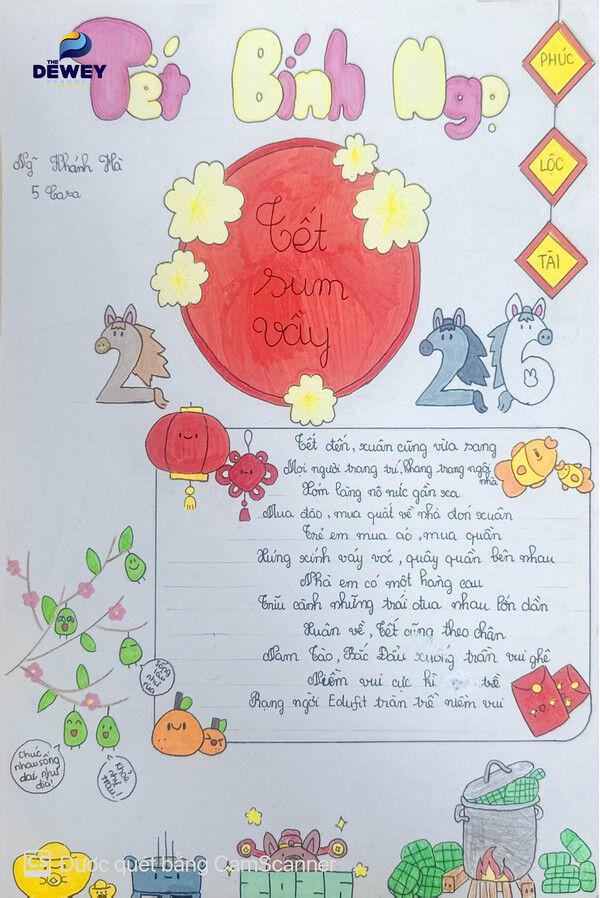 THE
DEWEY
SCHOOLS
Tết Bính Ngọ
PHÚC
LỘC
TÀI
Ng~ Khánh Hà
5 Cara
Tết
sum
vầy
2 26
Tết đến, xuân cũng vừa sang
Mọi người trang trí, khang trang ngôi
nhà
Xóm làng nô nức gần xa
Mua đào, mua quất về nhà đón xuân
Trẻ em mua áo, mua quần
Xúng xính váy vóc, quây quần bên nhau
Nhà em có một hàng cau
Trĩu cành những trái đua nhau lớn dần
Xuân về, Tết cũng theo chân
Nam Tào, Bắc Đẩu xuống trần vui ghê
Niềm vui cực kì
Rạng ngời Edufit tràn trề niềm vui
Sống
lâu
như
rùa
Chúc
nhau sống
dai như
đỉa!
Khỏe
như
trâu!
CS Được quét bằng CamScanner